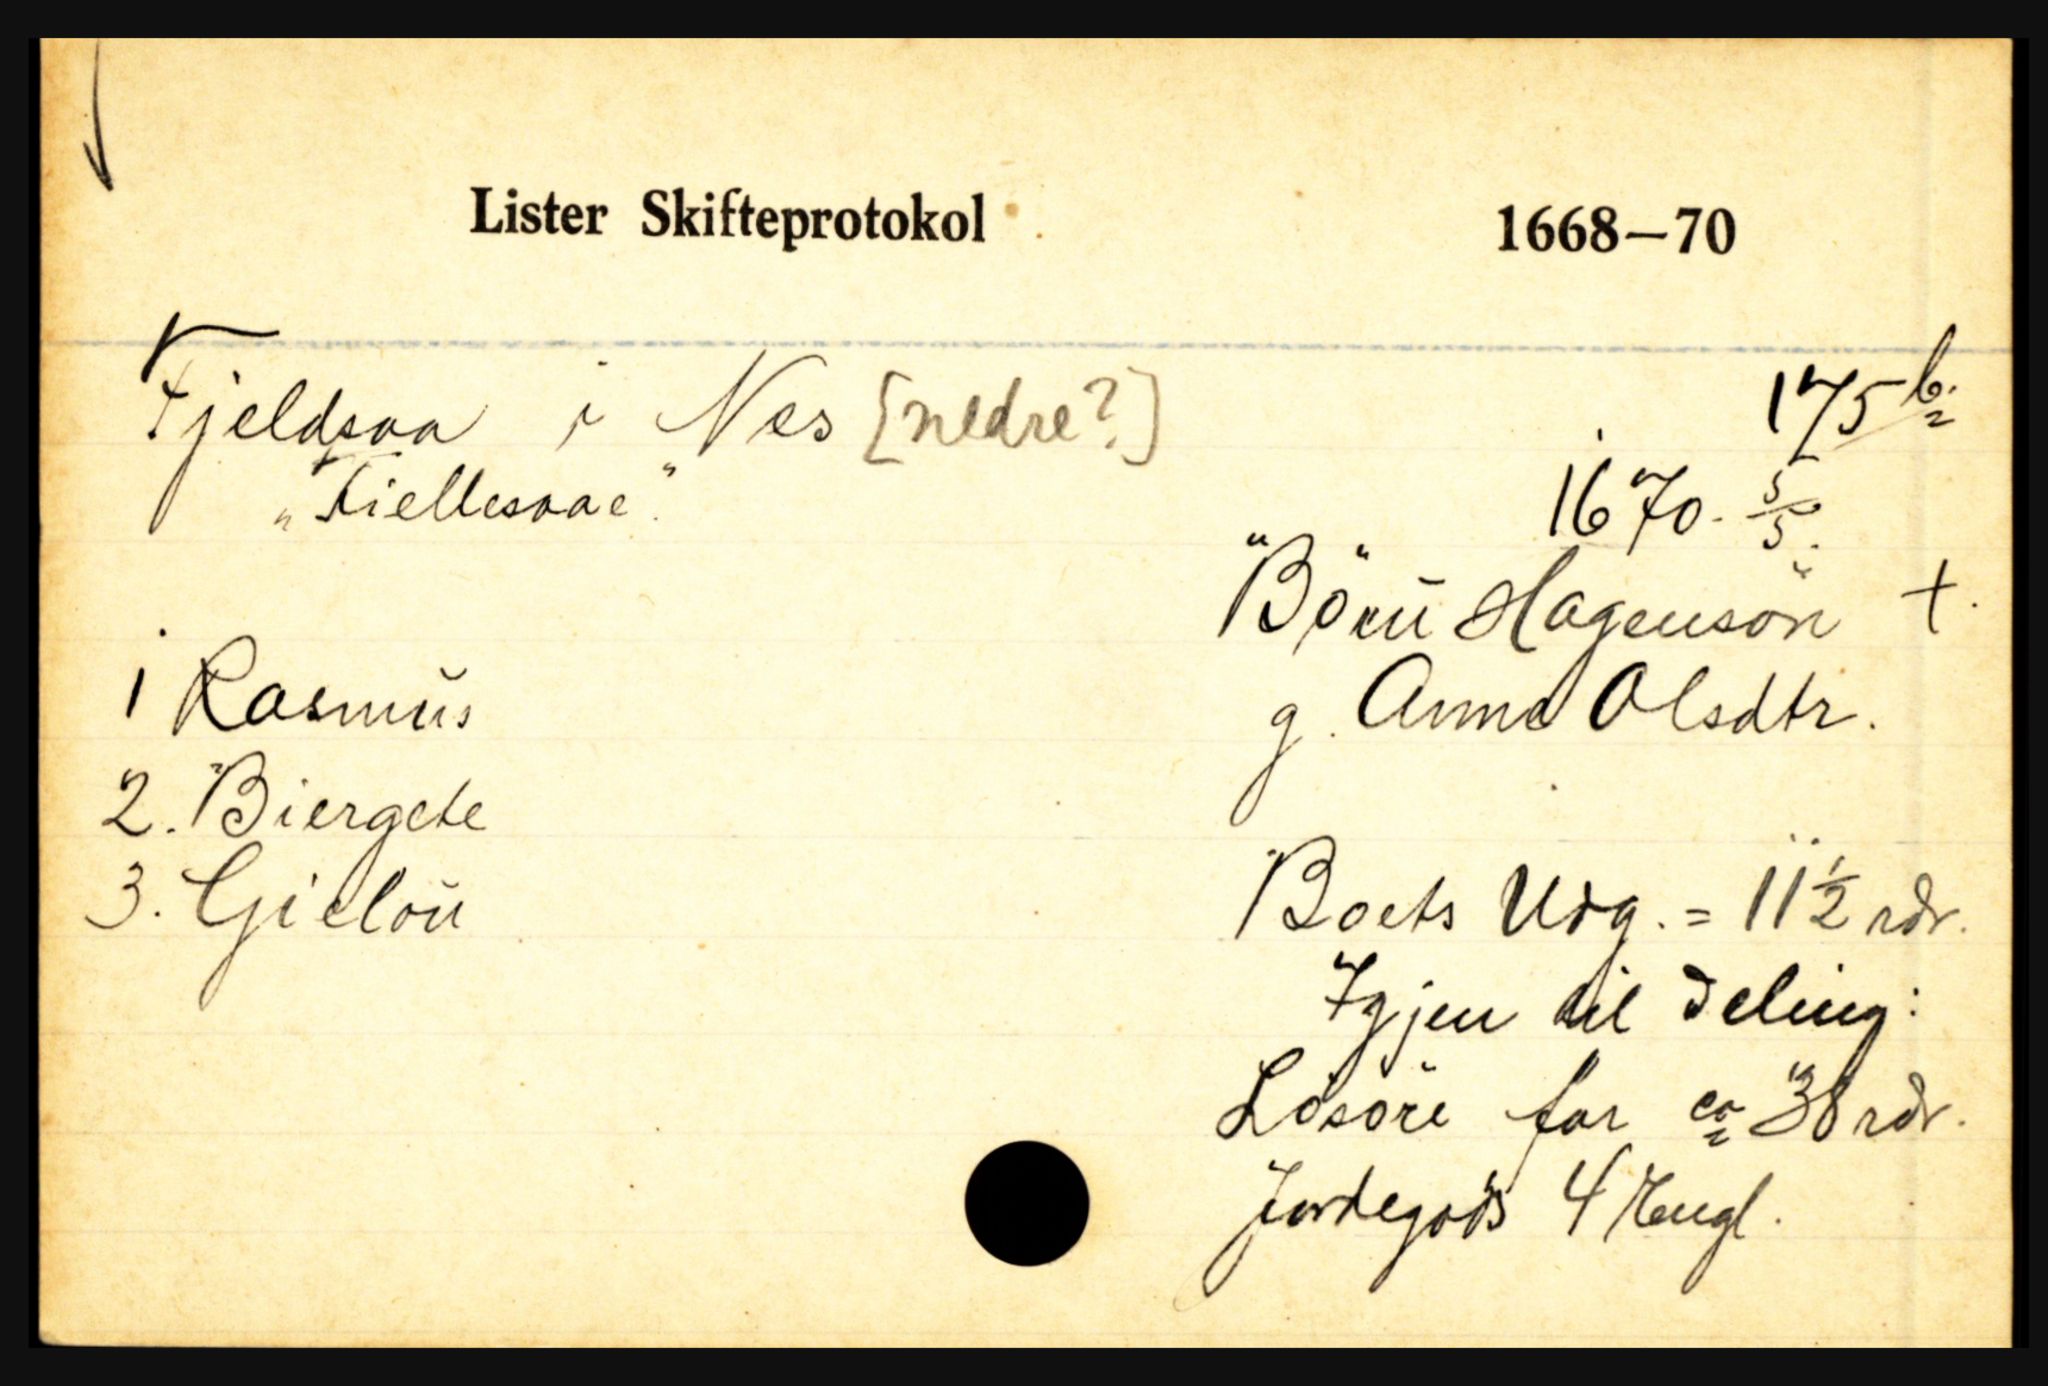 Lister Skifteprotokol 1668—70
Fjeldsaa i Nes [nedre?] 175 b.
"Fiellesaae". 1670. 5/5.
Börü Hagensön +.
1 Rasmus g. Anna Olsdtr.
2. Biergete
3. Gielou Boets Udg. = 11½ rdr.
Igjen til deling:
Lösöre for ca 38 rdr.
Jordegods 4 Engl.